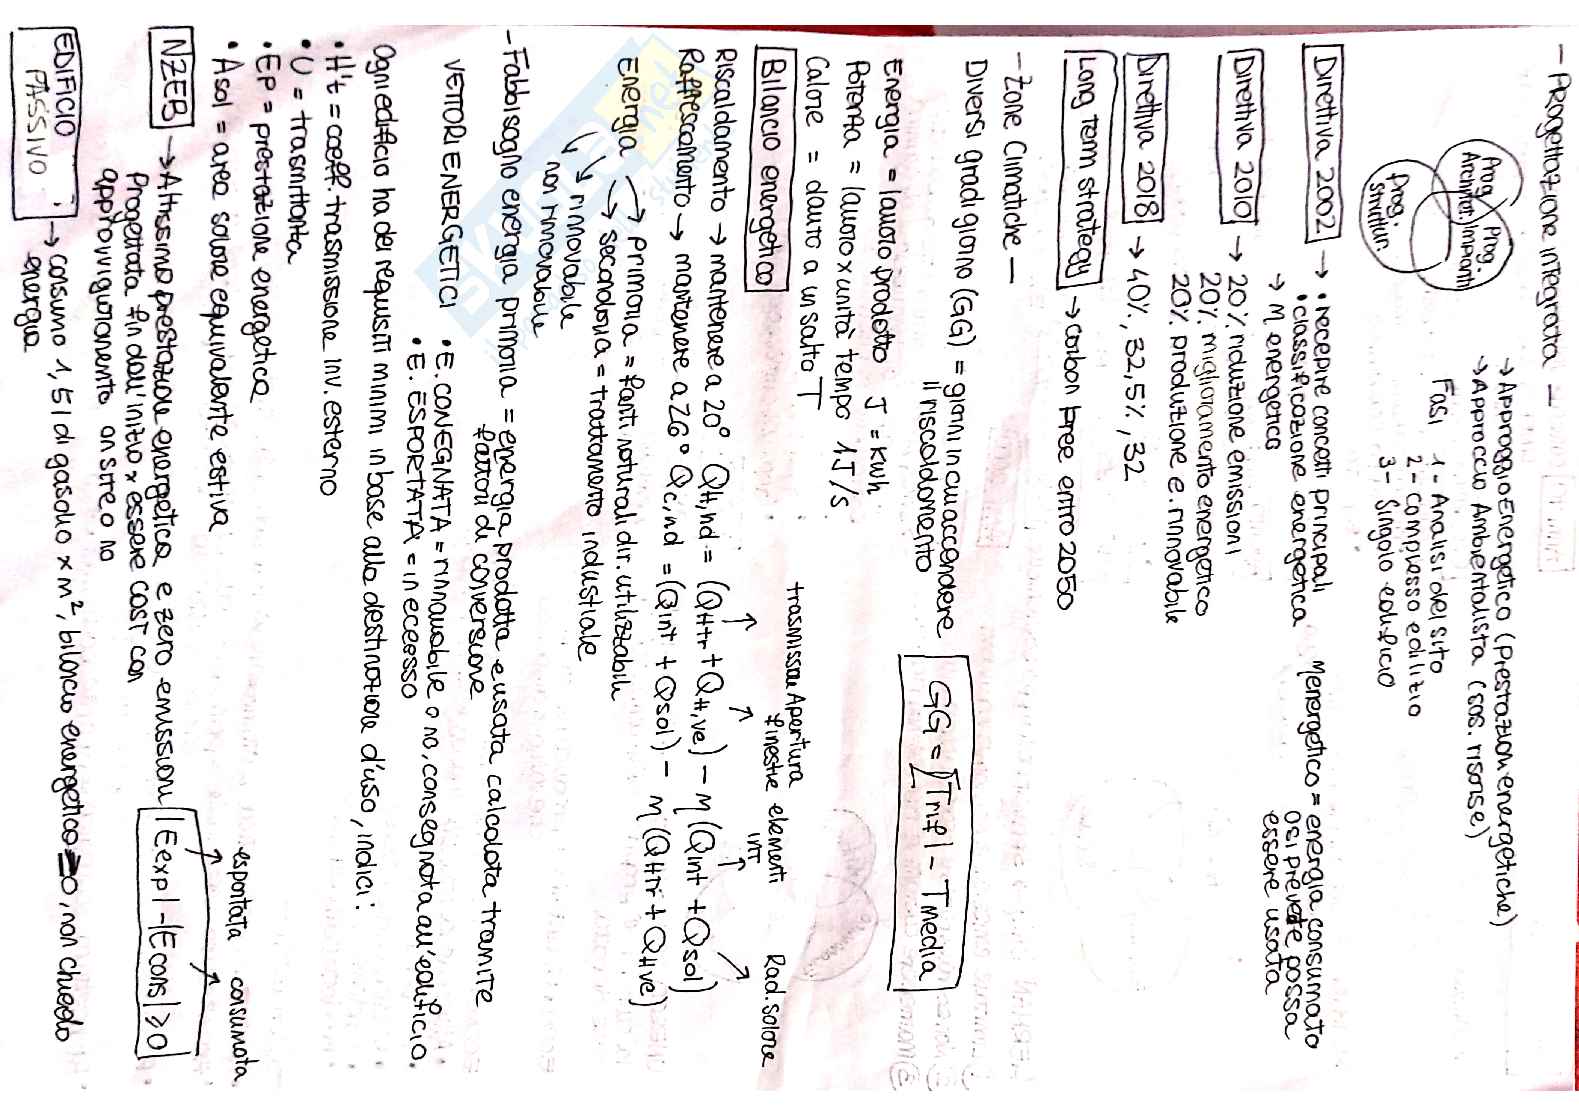 - Progettazione integrata -
→ Approccio Energetico (prestazioni energetiche)
→ Approccio Ambientalista (cos. risorse)
Prog. Architet.
Prog. Impianti
Prog. Struttur.
Fasi 1 - Analisi del sito
2 - Complesso edilizio
3 - Singolo edificio
Direttiva 2002 → • recepire concetti principali
• classificazione energetica
→ M energetico
M energetico = energia consumata
o si prevede possa
essere usata
Direttiva 2010 → 20% riduzione emissioni
20% miglioramento energetico
20% produzione e. rinnovabile
Direttiva 2018 → 40%, 32,5%, 32
Long term strategy → carbon free entro 2050
- Zone Climatiche -
Diversi gradi giorno (GG) = giorni in cui accendere
il riscaldamento
GG = ∑ |Trif| - Tmedia
Energia = lavoro prodotto J = kWh
Potenza = lavoro x unità tempo 1J/s
Calore = dovuto a un salto T
Bilancio energetico
trasmissione Apertura
finestre elementi
int
Rad. solare
Riscaldamento → mantenere a 20° QH,nd = (QHtr + QH,ve) - η (Qint + Qsol)
Raffrescamento → mantenere a 26° Qc,nd = (Qint + Qsol) - η (QHtr + QHve)
Energia → primaria = fonti naturali dir. utilizzabili
→ secondaria = trattamento industriale
↳ rinnovabile
↳ non rinnovabile
- Fabbisogno energia primaria = energia prodotta e usata calcolata tramite
fattori di conversione
VETTORI ENERGETICI • E. CONEGNATA = rinnovabile o no, consegnata all'edificio.
• E. ESPORTATA = in ecesso
Ogni edificio ha dei requisiti minimi in base alla destinazione d'uso, indici:
• H't = coeff. trasmissione inv. esterno
• U = trasmittanza
• EP = prestazione energetica
• Asol = area solare equivalente estiva
NZEB → Altissima prestazione energetica e zero emissioni |Eexp| - |Econs| ≥ 0
esportata consumata
Progettata fin dall'inizio x essere cost con
approvvigionamento onsite o no
EDIFICIO PASSIVO → consumo 1,5 l di gasolio x m², bilancio energetico = 0, non chiedo
energia